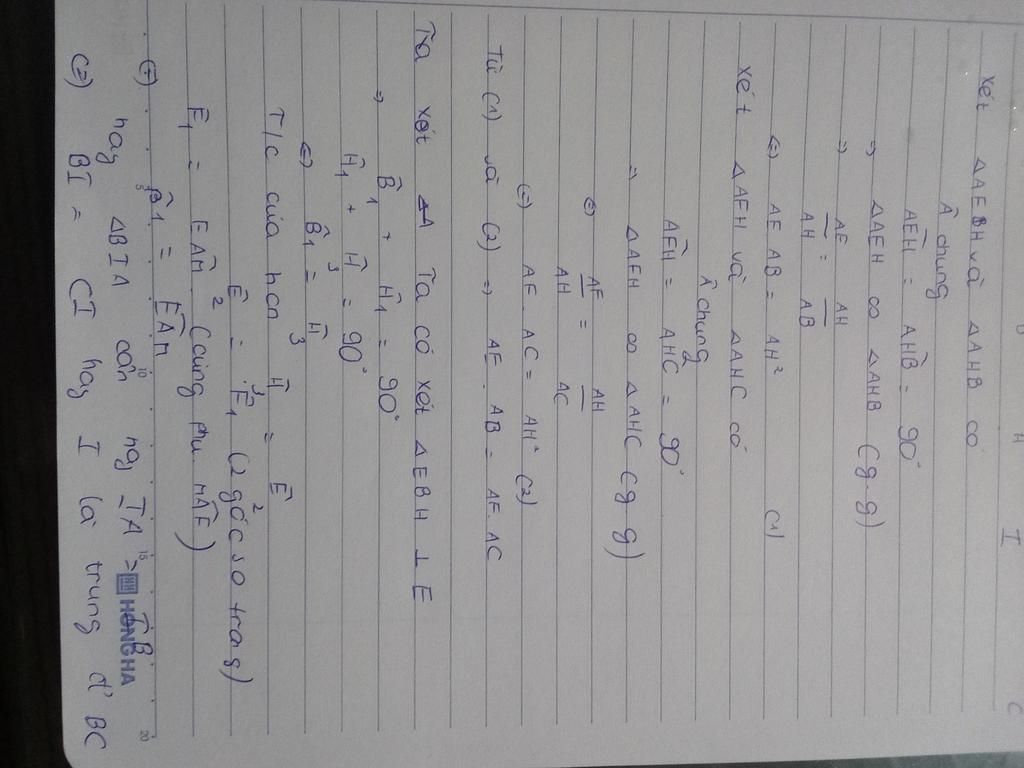 H I C
xét ΔAEBH và ΔAHB có
Â chung
AÊH = AĤB = 90°
⇒ ΔAEH ∞ ΔAHB (g-g)
⇒ AE/AH = AH/AB
⇔ AE AB = AH² (1)
xét ΔAEH và ΔAHC có
Â chung
AÊH = AĤC = 90°
⇒ ΔAEH ∞ ΔAHC (g-g)
⇔ AF/AH = AH/AC
⇔ AF. AC = AH² (2)
Từ (1) và (2) ⇒ AE. AB = AF. AC
Ta xét Ta có xét ΔEBH ⊥ E
⇒ B̂1 + Ĥ1 = 90°
Ĥ1 + Ĥ3 = 90°
⇔ B̂1 = Ĥ3
T/c của hcn Ĥ3 = Ê2
Ê2 = Ê1 (2 góc so trong)
Ê1 = EÂM (cùng phụ MÂF)
⇔ B̂1 = EÂM
hay ΔBIA cân hay IA = IB
⇔ BI = CI hay I là trung đ' BC
HONG HA
5 10 15 20